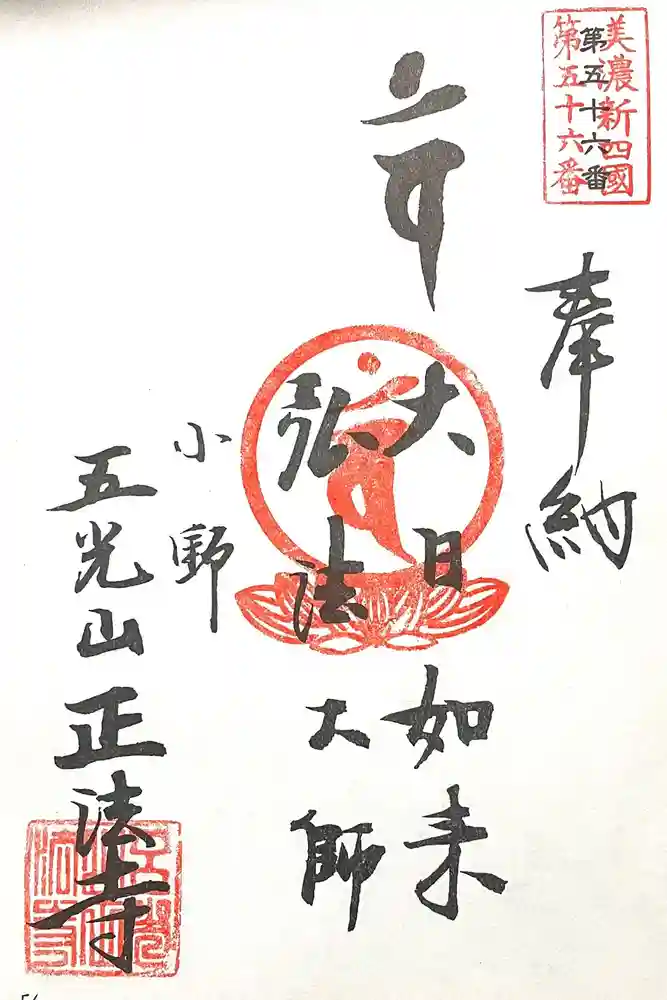 美濃新四國
第五十六番
第五十六番
奉納
大日如来
弘法大師
小野
五光山正法寺